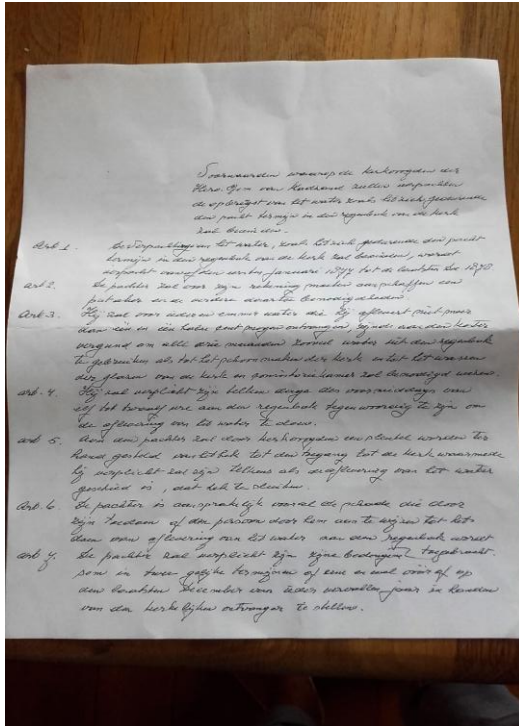 Voorwaarden waarop de kerkvoogden der
Herv. Gem van Kadzand zullen verpachten
de opbrengst van het water zoals het zich gedurende
den pacht termijn in den regenbak van de kerk
zal bevinden.
Art 1. De verpachting van het water, zoals het zich gedurende den pacht
termijn in den regenbak van de kerk zal bevinden, wordt
verpacht van af den eersten Januari 1877 tot de laatsten Dec 1878
art 2. De pachter zal voor zijn rekening moeten aanschaffen een
putaker en de verdere daartoe benoodigdheden
Art. 3. Hij zal voor iederen emmer water die hij aflevert niet meer
dan één en één halve cent mogen ontvangen, zijnde aan den koster
vergund om alle drie maanden zooveel water uit den regenbak
te gebruiken als tot het schoonmaken der kerk en het tot wasschen
der glazen van de kerk en consistoriekamer zal benoodigd wezen.
art. 4. Hij zal verplicht zijn telken dage des voormiddags van
elf tot twaalf ure aan den regenbak tegenwoordig te zijn om
de aflevering van het water te doen.
art 5. Aan den pachter zal door kerkvoogden een sleutel worden ter
hand gesteld van het hek tot den toegang tot de kerk waarmede
hij verplicht zal zijn telkens als de aflevering van het water
geschied is, dat hek te sluiten.
art. 6. De pachter is aansprakelijk voor al de schade die door
zijn toedoen of den persoon door hem aan te wijzen tot het
doen van aflevering van het water aan den regenbak wordt
art 7. De pachter zal verplicht zijn zijne bedongen toegebracht.
som in twee gelijke termijnen of eens en wel vóór of op
den laatsten December van ieder vervallen jaar in handen
van den kerkelijken ontvanger te stellen.